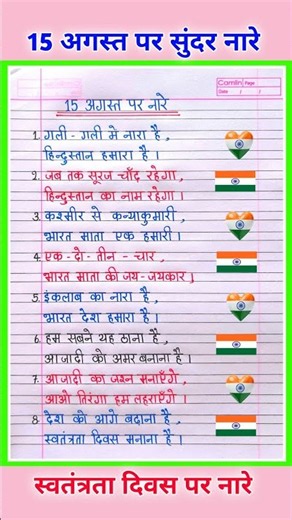 15 अगस्त पर सुंदर नारे
Camlin Page
Date / /
15 अगस्त पर नारे
1. गली - गली मे नारा है ,
हिन्दुस्तान हमारा है ।
2. जब तक सूरज चाँद रहेगा ,
हिन्दुस्तान का नाम रहेगा ।
3. कश्मीर से कन्याकुमारी ,
भारत माता एक हमारी ।
4. एक - दो - तीन - चार ,
भारत माता की जय-जयकार ।
5. इंकलाब का नारा है ,
भारत देश हमारा है ।
6. हम सबने यह ठाना है ,
आजादी को अमर बनाना है ।
7. आजादी का जश्न मनाएँगे ,
आओ तिरंगा हम लहराएँगे ।
8. देश को आगे बढ़ाना है ,
स्वतंत्रता दिवस मनाना है ।
स्वतंत्रता दिवस पर नारे